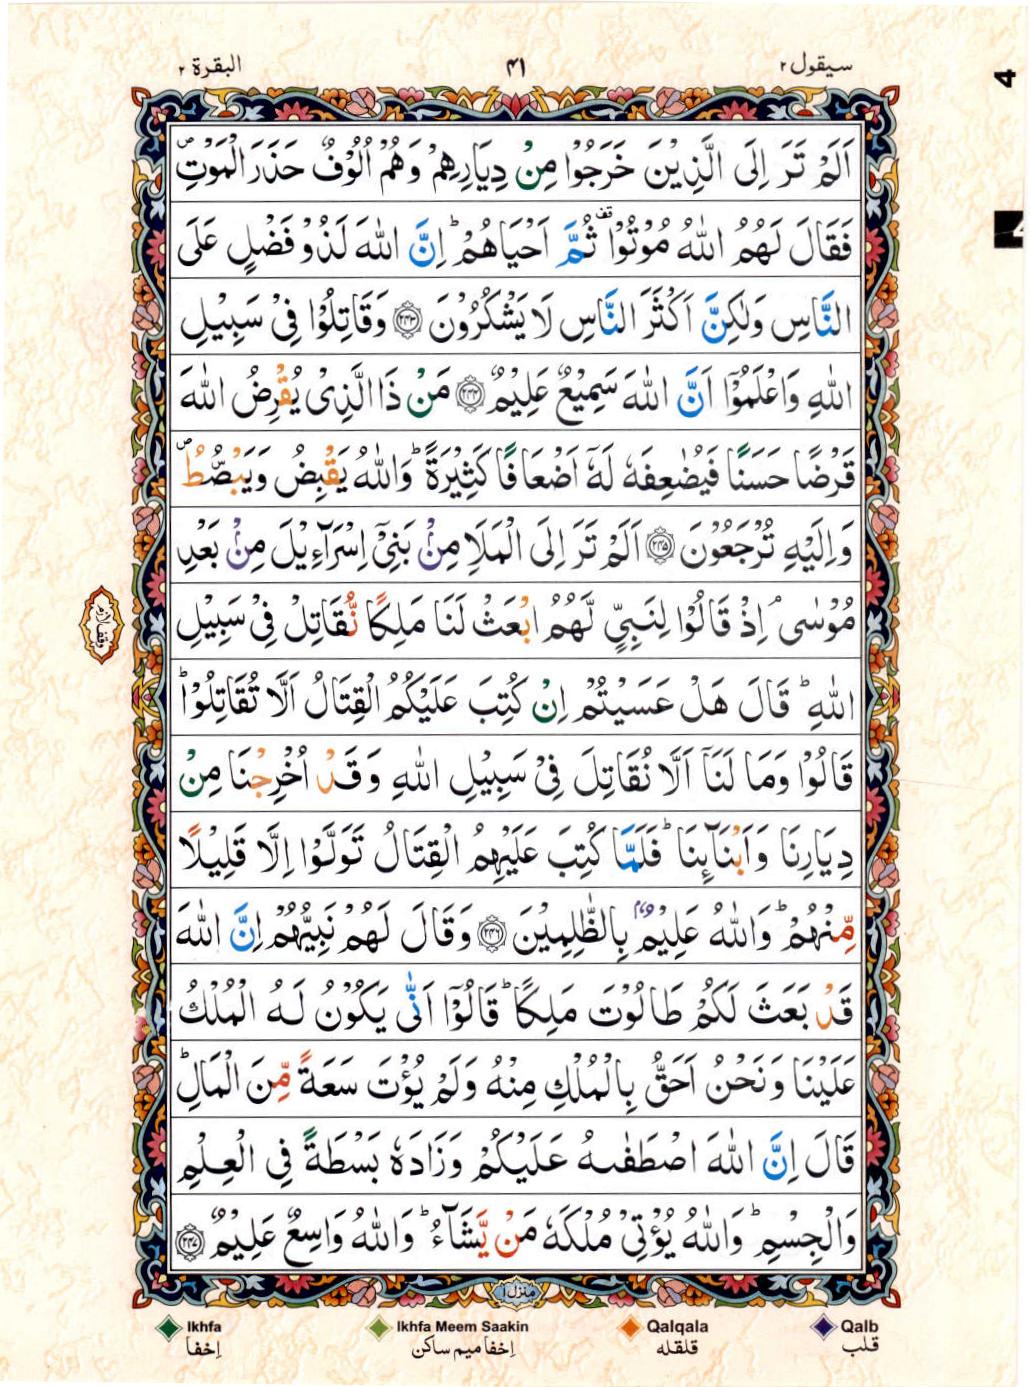 سيقول ٢ ۴۱ البقرة ٢
اَلَمْ تَرَ اِلَى الَّذِيْنَ خَرَجُوْا مِنْ دِيَارِهِمْ وَهُمْ اُلُوْفٌ حَذَرَ الْمَوْتِ ۪
فَقَالَ لَهُمُ اللّٰهُ مُوْتُوْا ۫ ثُمَّ اَحْيَاهُمْ ؕ اِنَّ اللّٰهَ لَذُوْ فَضْلٍ عَلَى
النَّاسِ وَلٰكِنَّ اَكْثَرَ النَّاسِ لَا يَشْكُرُوْنَ ۝۲۴۳ وَقَاتِلُوْا فِىْ سَبِيْلِ
اللّٰهِ وَاعْلَمُوْٓا اَنَّ اللّٰهَ سَمِيْعٌ عَلِيْمٌ ۝۲۴۴ مَنْ ذَا الَّذِىْ يُقْرِضُ اللّٰهَ
قَرْضًا حَسَنًا فَيُضٰعِفَهٗ لَهٗٓ اَضْعَافًا كَثِيْرَةً ؕ وَاللّٰهُ يَقْبِضُ وَيَبْصُۜطُ ۪
وَاِلَيْهِ تُرْجَعُوْنَ ۝۲۴۵ اَلَمْ تَرَ اِلَى الْمَلَاِ مِنْۢ بَنِىْٓ اِسْرَآءِيْلَ مِنْۢ بَعْدِ
مُوْسٰى ۘ اِذْ قَالُوْا لِنَبِىٍّ لَّهُمُ ابْعَثْ لَنَا مَلِكًا نُّقَاتِلْ فِىْ سَبِيْلِ
وقف لازم
اللّٰهِ ؕ قَالَ هَلْ عَسَيْتُمْ اِنْ كُتِبَ عَلَيْكُمُ الْقِتَالُ اَلَّا تُقَاتِلُوْا ؕ
قَالُوْا وَمَا لَنَآ اَلَّا نُقَاتِلَ فِىْ سَبِيْلِ اللّٰهِ وَقَدْ اُخْرِجْنَا مِنْ
دِيَارِنَا وَاَبْنَآئِنَا ؕ فَلَمَّا كُتِبَ عَلَيْهِمُ الْقِتَالُ تَوَلَّوْا اِلَّا قَلِيْلًا
مِّنْهُمْ ؕ وَاللّٰهُ عَلِيْمٌۢ بِالظّٰلِمِيْنَ ۝۲۴۶ وَقَالَ لَهُمْ نَبِيُّهُمْ اِنَّ اللّٰهَ
قَدْ بَعَثَ لَكُمْ طَالُوْتَ مَلِكًا ؕ قَالُوْٓا اَنّٰى يَكُوْنُ لَهُ الْمُلْكُ
عَلَيْنَا وَنَحْنُ اَحَقُّ بِالْمُلْكِ مِنْهُ وَلَمْ يُؤْتَ سَعَةً مِّنَ الْمَالِ ؕ
قَالَ اِنَّ اللّٰهَ اصْطَفٰىهُ عَلَيْكُمْ وَزَادَهٗ بَسْطَةً فِى الْعِلْمِ
وَالْجِسْمِ ؕ وَاللّٰهُ يُؤْتِىْ مُلْكَهٗ مَنْ يَّشَآءُ ؕ وَاللّٰهُ وَاسِعٌ عَلِيْمٌ ۝۲۴۷
منزل ١
Ikhfa Ikhfa Meem Saakin Qalqala Qalb
إخفا إخفا ميم ساكن قلقله قلب
4